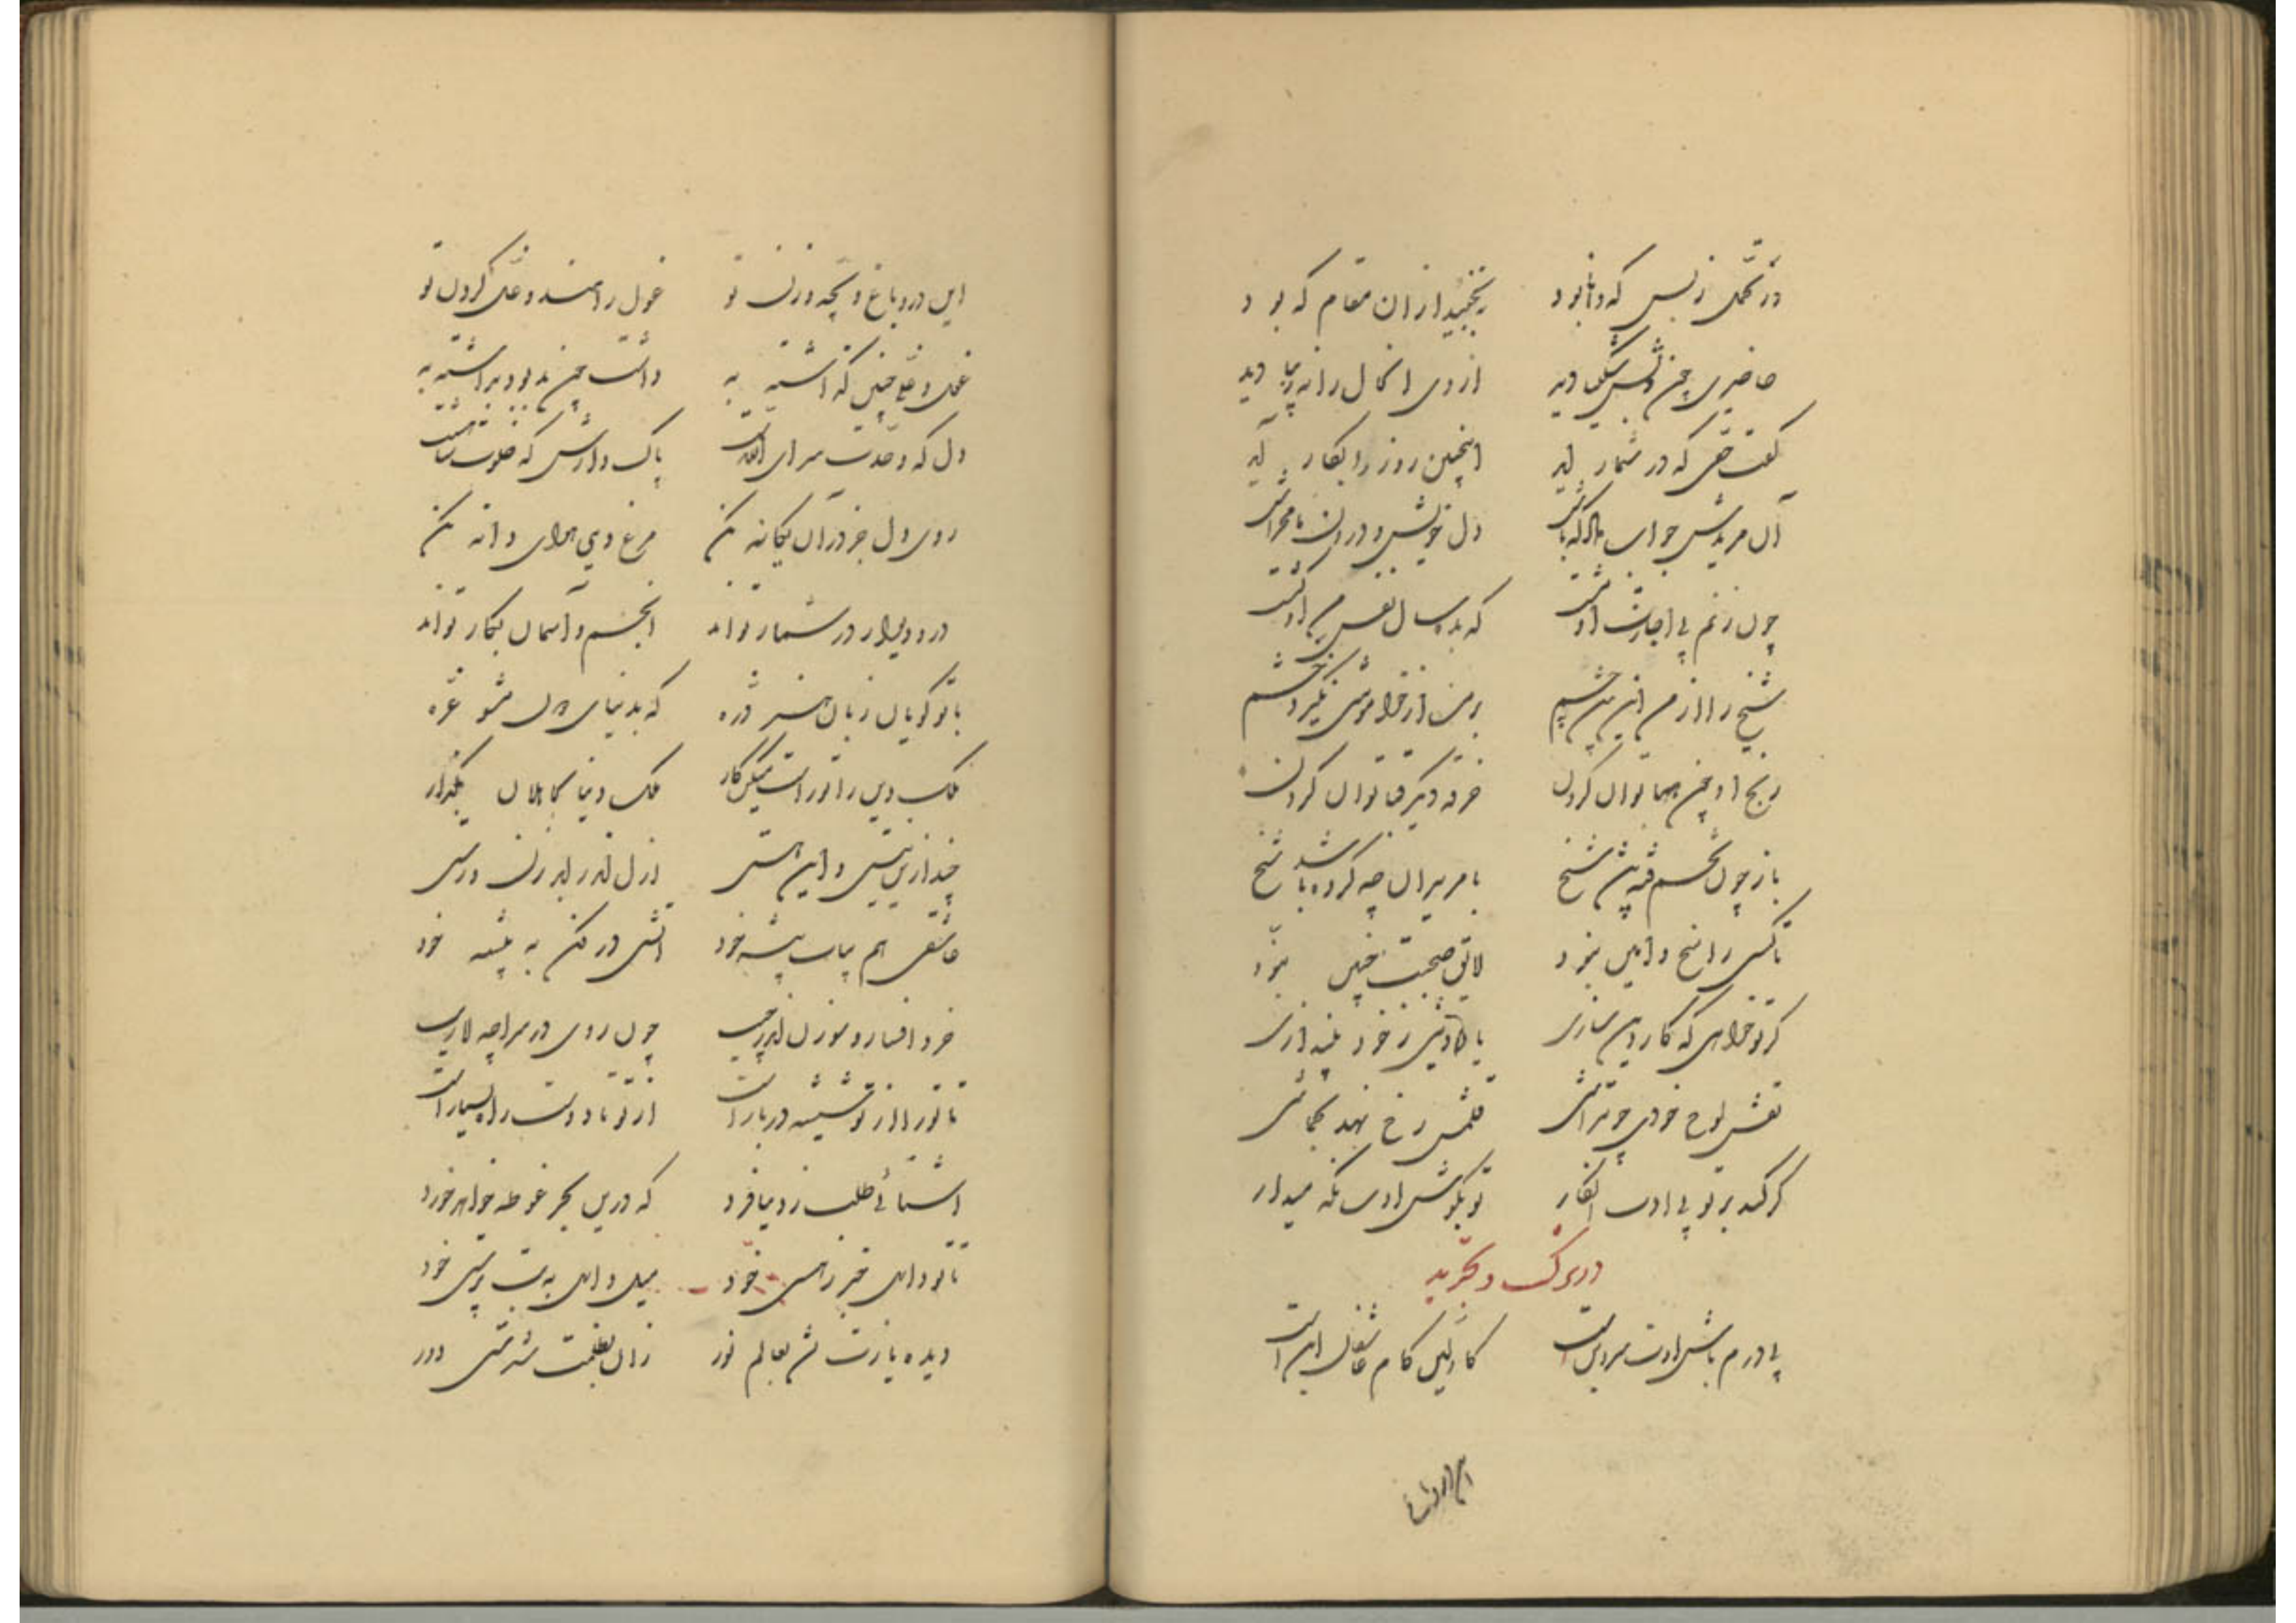 در تحمل ز بس که دانا بود    بنجنبید از ان مقام که بود
حاضری چون دلش شکیبا دید    از وی انکار را نه زیبا دید
گفت حقی که در شمار آید    اینچنین روز را بکار آید
آن مریدش جواب داد که باش    دل خویش و درون ما مخراش
چون زنم بی اجازت او مشت    که بده سال نفس من او کشت
شیخ را از من این نبیند چشم    و من از خوا موشی نگیرد خشم
رنج او چون هبا توان کردن    خرقه دیگر قبا توان کردن
باز چون خشم رفته پیش شیخ    با مریدان چه کرده باشد شیخ
تا کسی راسخ و امین نبود    لایق صحبت چنین نبود
گر تو خواهی که کار دین سازی    یاد خویش ز خود بیندازی
نقش لوح خودی چو بتراشی    قلمش رخ نهد بجماشی
گر کند بر تو بی ادب انکار    تو بکوش ادب نگه میدار
در ترک و تجرید
بی درم باش ادت سر دین است    کاولین کام عاشقان این است
این در و باغ و بچه و زن تو    غول راهند و غل گردن تو
غل و غول چنین گذاشته به    داشت چون بد بود برداشته به
دل که وحدت سرای الله است    پاک دارش که خلوت شاهست
روی دل جز در آن یگانه مکن    مرغ دین هوای دانه مکن
در و دیوار در شمار تواند    انجم و آسمان بکار تواند
با تو گویان زبان هر ذره    که بدنیای دون مشو غره
ملک دین را تو راست میکن کار    ملک دنیا بکاهلان بگذار
چند ازین نیستی و این هستی    از دل اندر آبدر زن و رستی
عاشقی هم بیاب پیشه خود    آتشی در فکن به بیشه خود
خر و افسار و سوزن اندر جیب    چون روی در سراچه لاریب
تا تو را از تو شیشه در بار است    از تو تا دوست راه بسیار است
آشنائی طلب ز دنیا فرد    که درین بحر غوطه خواهد خورد
تا تو داری خبر ز هستی خود    میل داری به بت پرستی خود
دیده بازت نشد بعالم نور    زان بظلمت شدستی دور